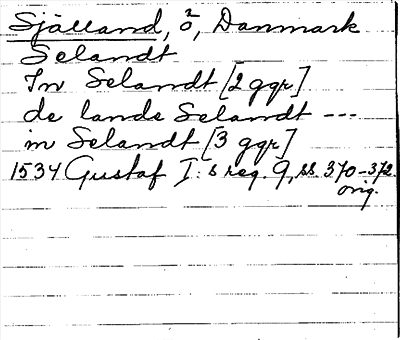 Själland, ö, Danmark
Selandt
In Selandt [2 ggr]
de lande Selandt ---
in Selandt [3 ggr]
1534 Gustaf I:s reg. 9, ss. 370-372.
orig.